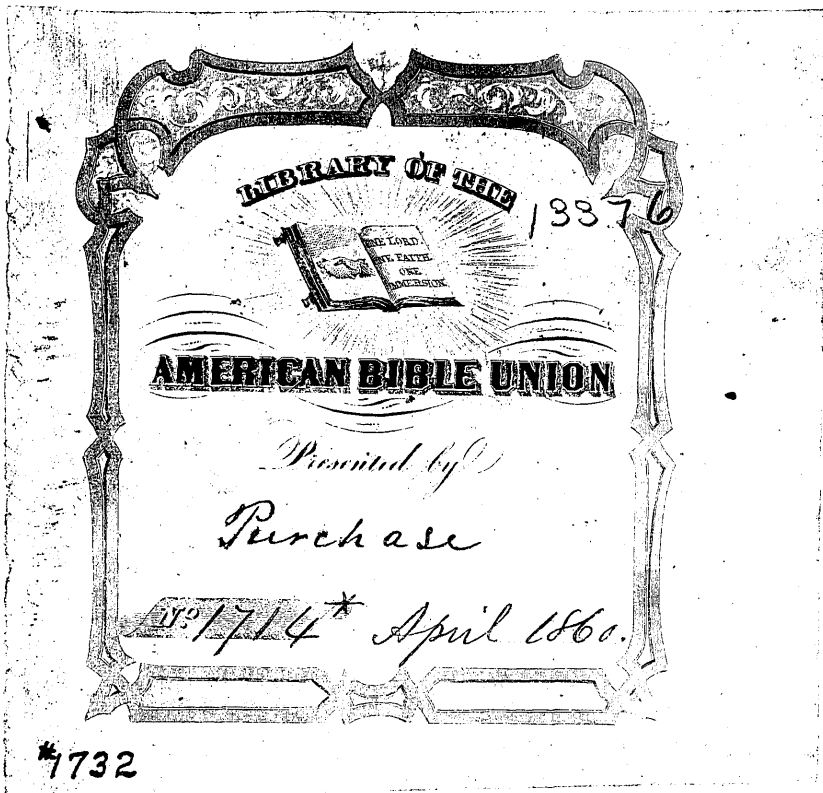 LIBRARY OF THE
13376
ONE LORD.
ONE FAITH.
ONE
IMMERSION.
AMERICAN BIBLE UNION
Presented by
Purchase
No 1714* April 1860.
#1732